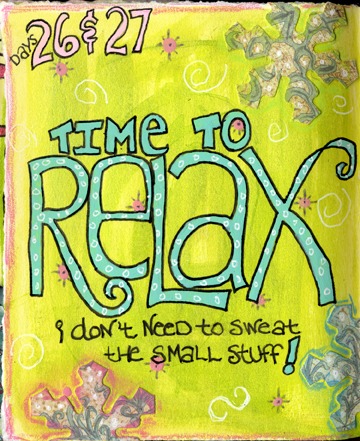 Days 26 & 27
TIME TO
RELAX
I don't need to sweat
the small stuff!